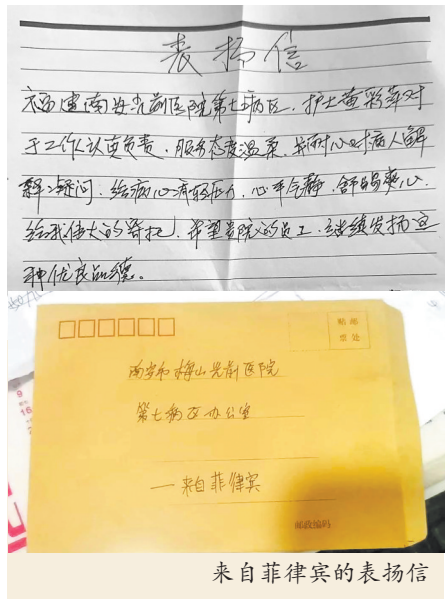 表扬信
福建南安光前医院第七病区，护士黄彩
于工作认真负责，服务态度温柔，并耐心对病人解
释疑问，给病心满轻压力，心平气静，舒畅爽心，
给我伟大的寄托，希望贵院的员工，继续发扬这
种优良品德。
贴邮
票处
南安市梅山光前医院
第七病区办公室
—来自菲律宾
邮政编码
来自菲律宾的表扬信